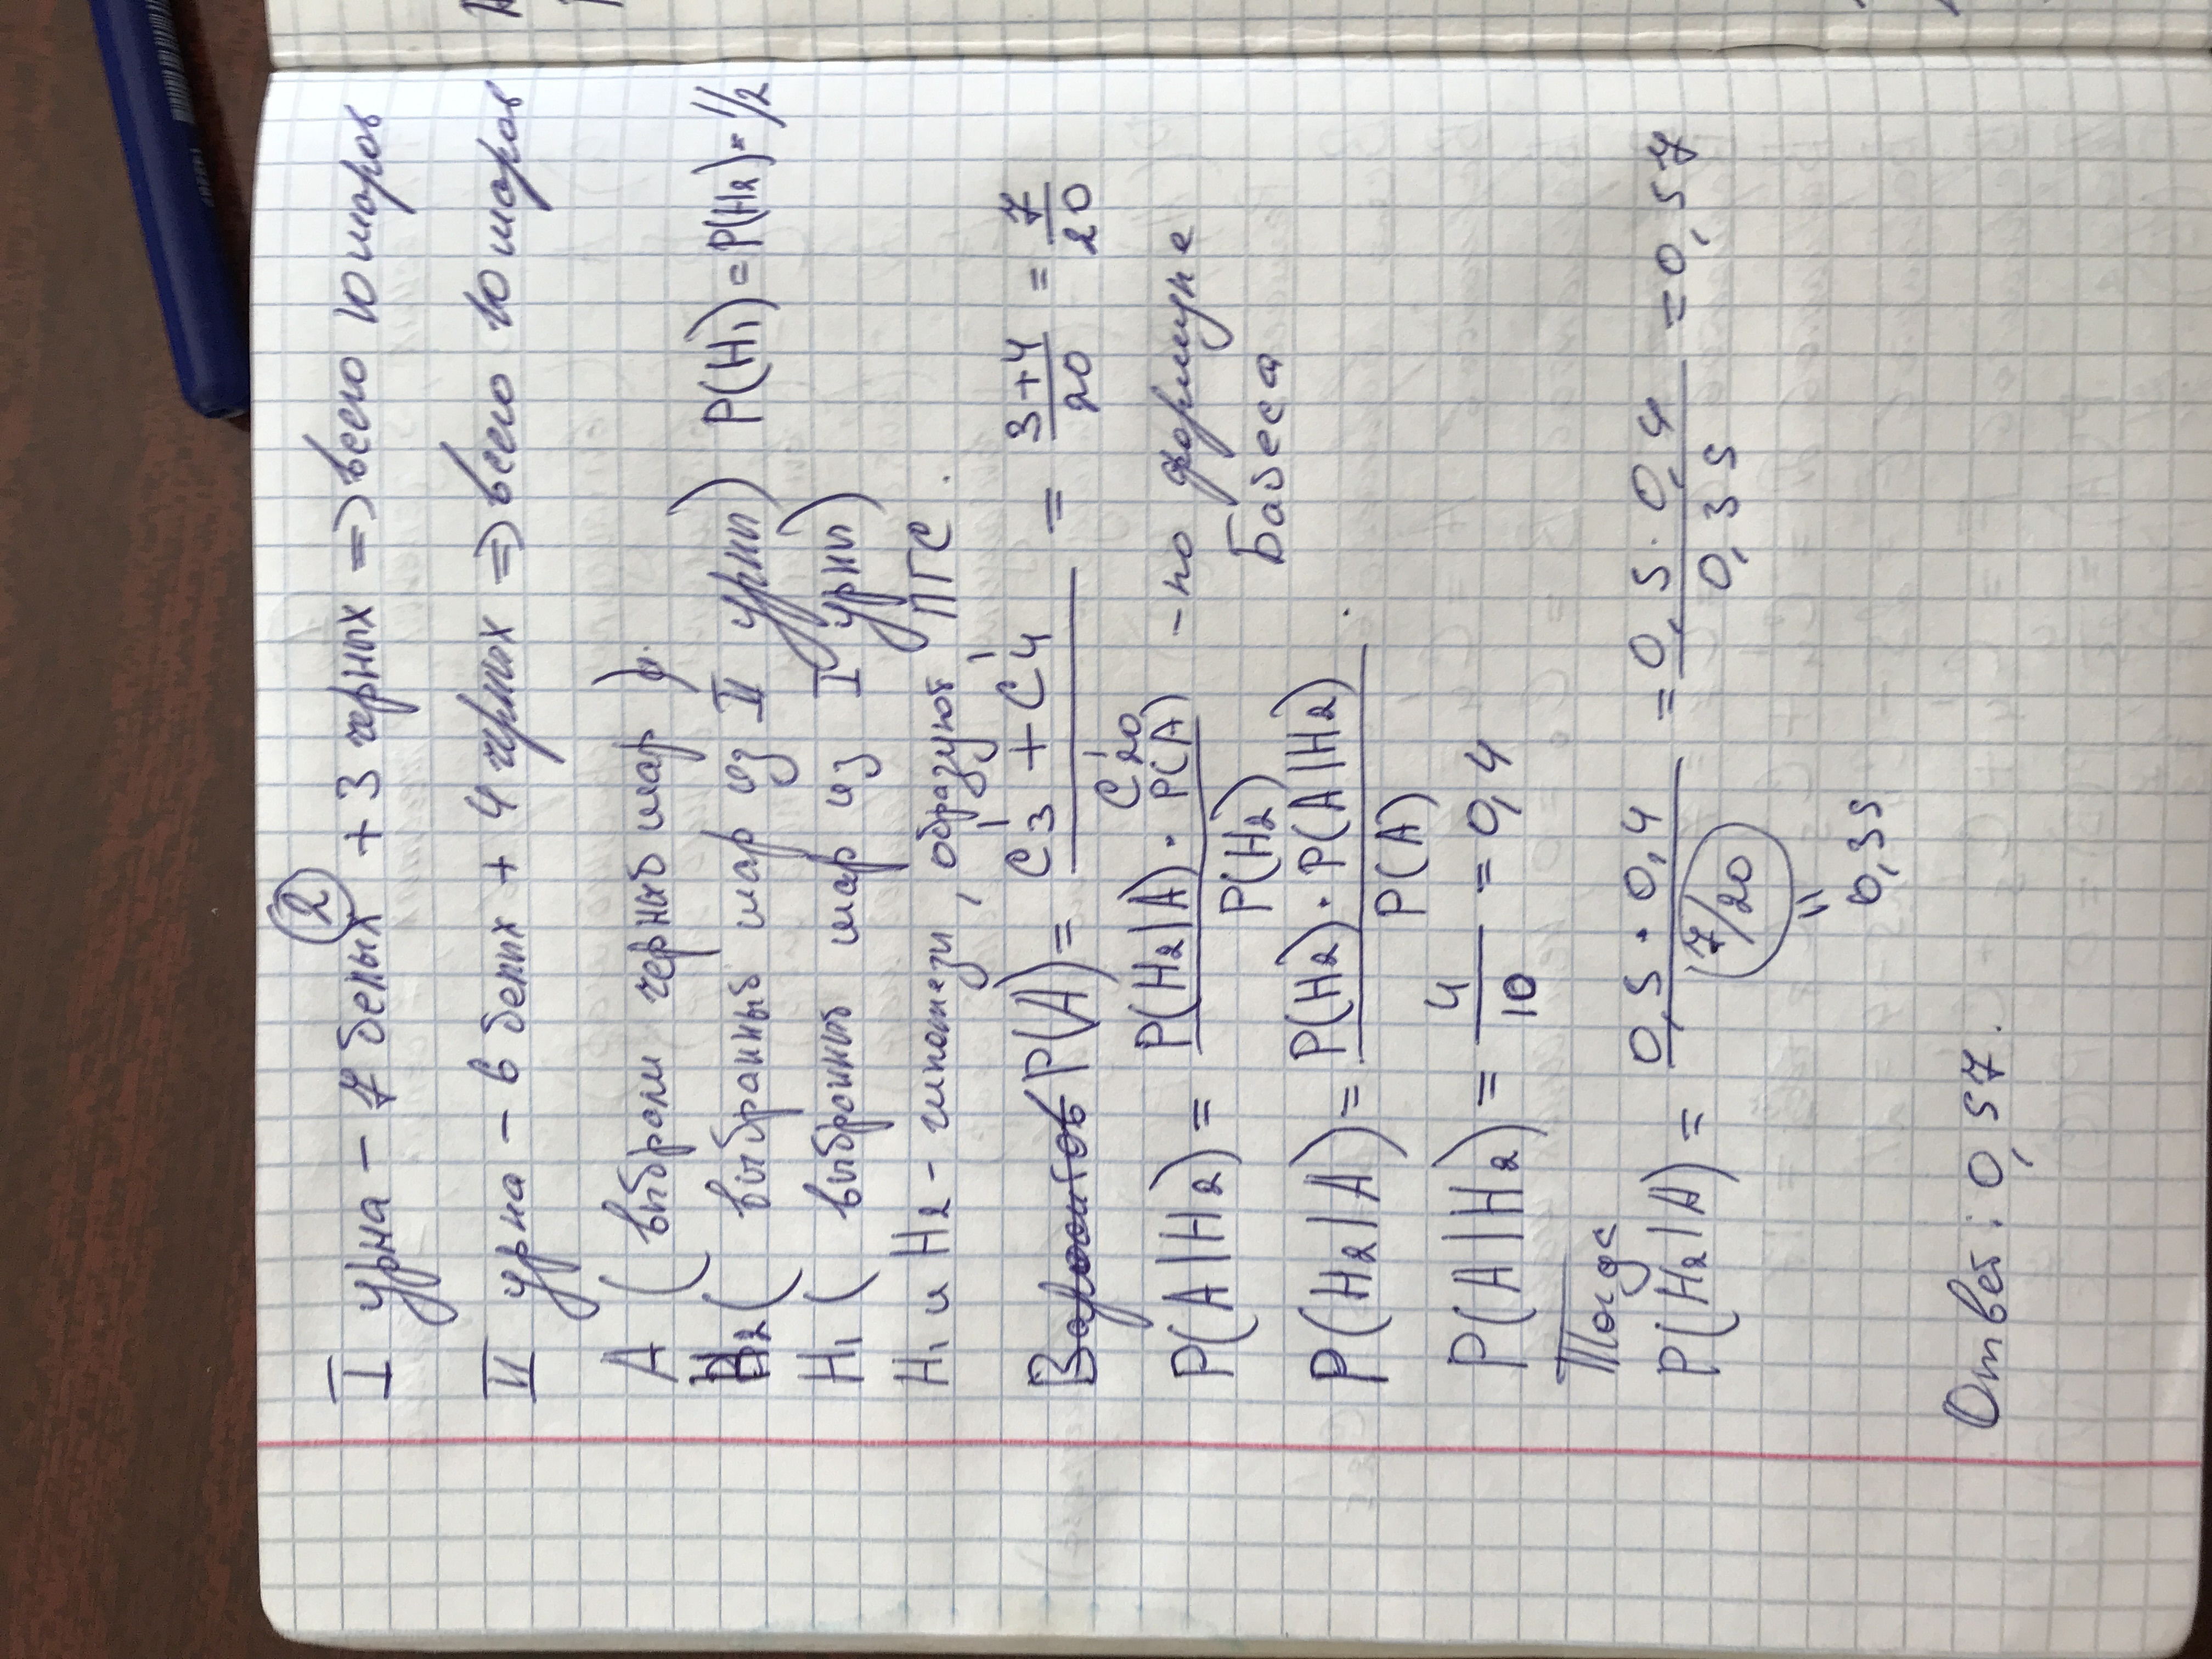 2
I урна - 7 белых + 3 черных => всего 10 шаров
II урна - 6 белых + 4 черных => всего 10 шаров
A ( выбрали черный шар ).
H₂ ( выбранный шар из II урны ) P(H₁) = P(H₂) = 1/2
H₁ ( выбранный шар из I урны )
H₁ и H₂ - гипотезы, образуют ПГС.
P(A) = (C₃¹ + C₄¹) / C₂₀¹ = (3+4)/20 = 7/20
P(A|H₂) = P(H₂|A) · P(A) / P(H₂) - по формуле Байеса
P(H₂|A) = P(H₂) · P(A|H₂) / P(A) .
P(A|H₂) = 4/10 = 0,4
Тогда
P(H₂|A) = 0,5 · 0,4 / (7/20) = 0,5 · 0,4 / 0,35 = 0,57
"
0,35
Ответ: 0,57.